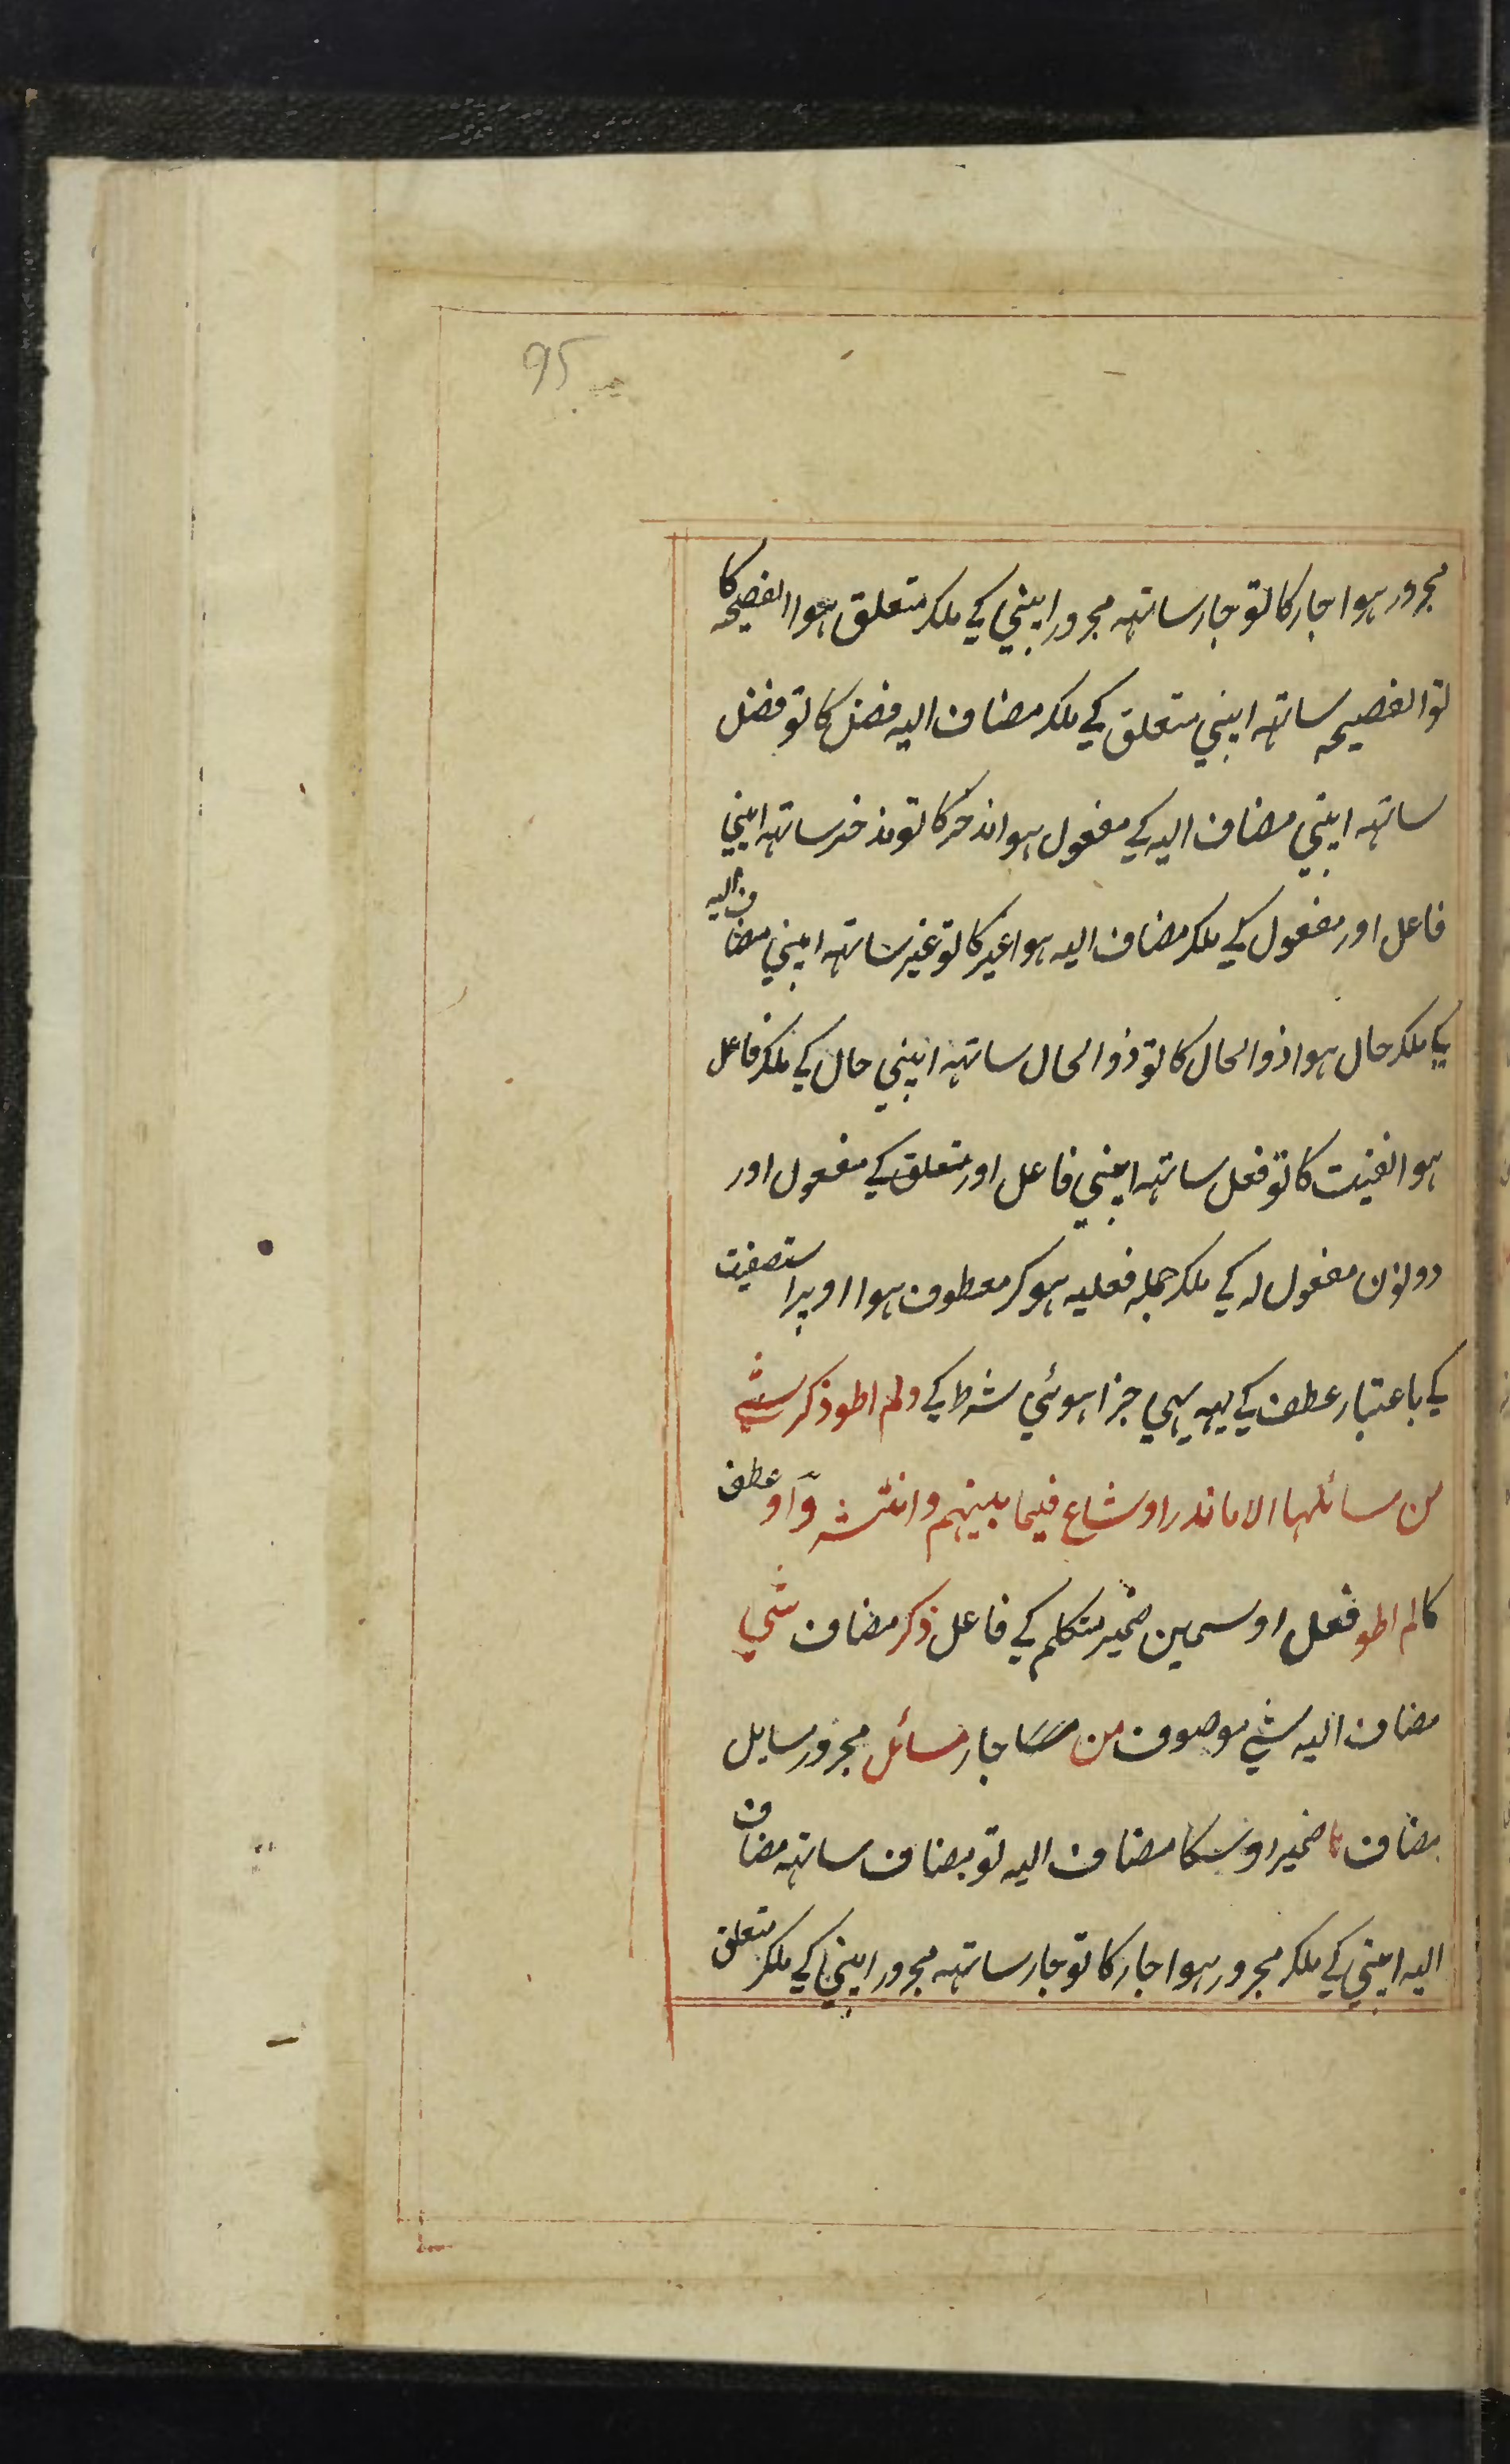 95
مجرور ہوا جار کا تو جار ساتہہ مجرور اپنی کی ملکر متعلق ہوا الفصیحہ کا
تو الفصیحہ ساتہہ اپنی متعلق کی ملکر مضاف الیہ فضل کا تو فضل
ساتہہ اپنی مضاف الیہ کی مفعول ہوا مذخر کا تو مذخر ساتہہ اپنی
فاعل اور مفعول کی ملکر مضاف الیہ ہوا غیر کا تو غیر ساتہہ اپنی مضاف الیہ
کی ملکر حال ہوا ذوالحال کا تو ذوالحال ساتہہ اپنی حال کی ملکر فاعل
ہوا نفیت کا تو فعل ساتہہ اپنی فاعل اور متعلق کی مفعول اور
دونون مفعول لہ کی ملکر جملہ فعلیہ ہوکر معطوف ہوا اوپر استصفیت
کی باعتبار عطف کی یہہ بہی جزا ہوئی شرط کی ولم اطو ذکر شی
من مسائلہا الا ما ندر او شاع فیما بینہم وانتشر واو عطف
کا لم اطو فعل اوسمین ضمیر متکلم کی فاعل ذکر مضاف شی
مضاف الیہ شی موصوف من جار مسائل مجرور سایل
مضاف ہا ضمیر اوسکا مضاف الیہ تو مضاف ساتہہ مضاف
الیہ اپنی کی ملکر مجرور ہوا جار کا تو جار ساتہہ مجرور اپنی کی ملکر متعلق